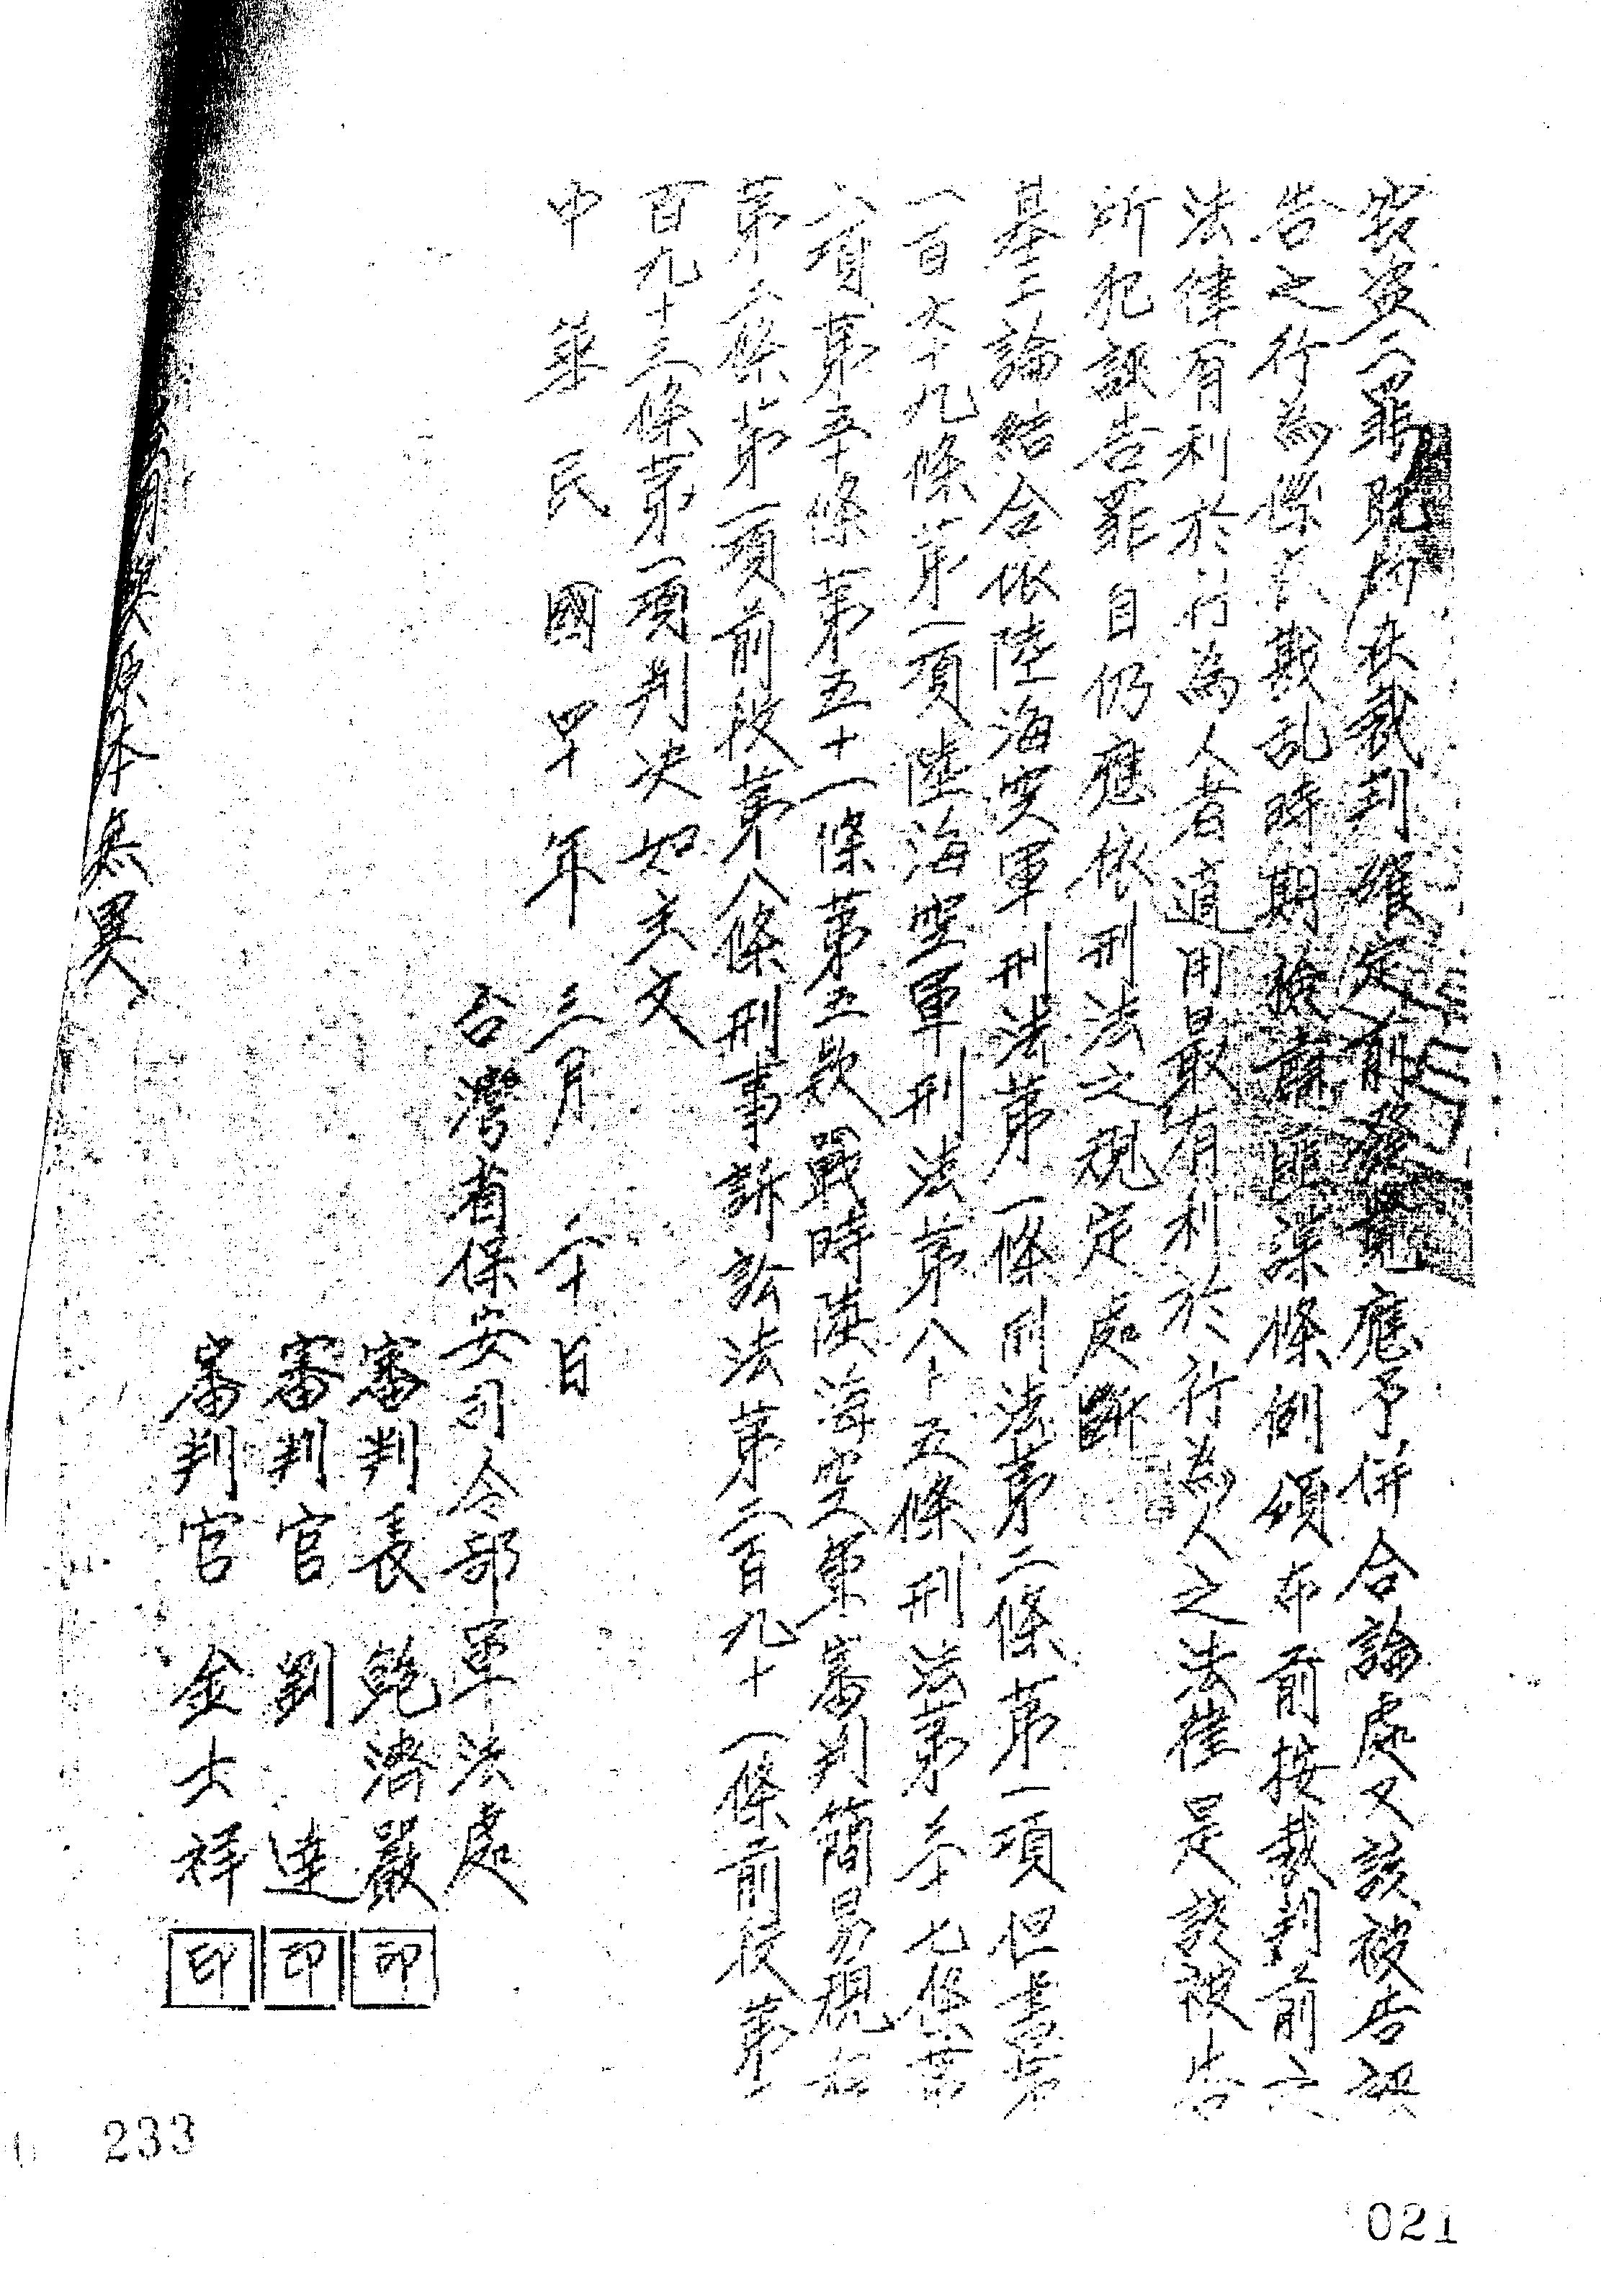 資二罪既均在裁判確定前發覺應予併合論處又該被告誣
告之行為係在戡乱時期檢肅匪諜條例頒布前按裁判前之
法律有利於行為人者適用最有利於行為人之法律是該被告
所犯誣告罪自仍應依刑法之規定處斷
基上論結合依陸海空軍刑法第一條刑法第二條第一項但書第
一百六十九條第一項陸海空軍刑法第八十五條刑法第三十七條第
二項第五十條第五十一條第五款戰時陸海空軍審判簡易規程
第二條第一項前段第八條刑事訴訟法第二百九十一條前段第二
百九十三條第一項判決如主文
中華民國四十年三月二十日
台灣省保安司令部軍法處
審判長 鮑濟嚴 印
審判官 劉達 印
審判官 金士祥 印
原本無異
233
021